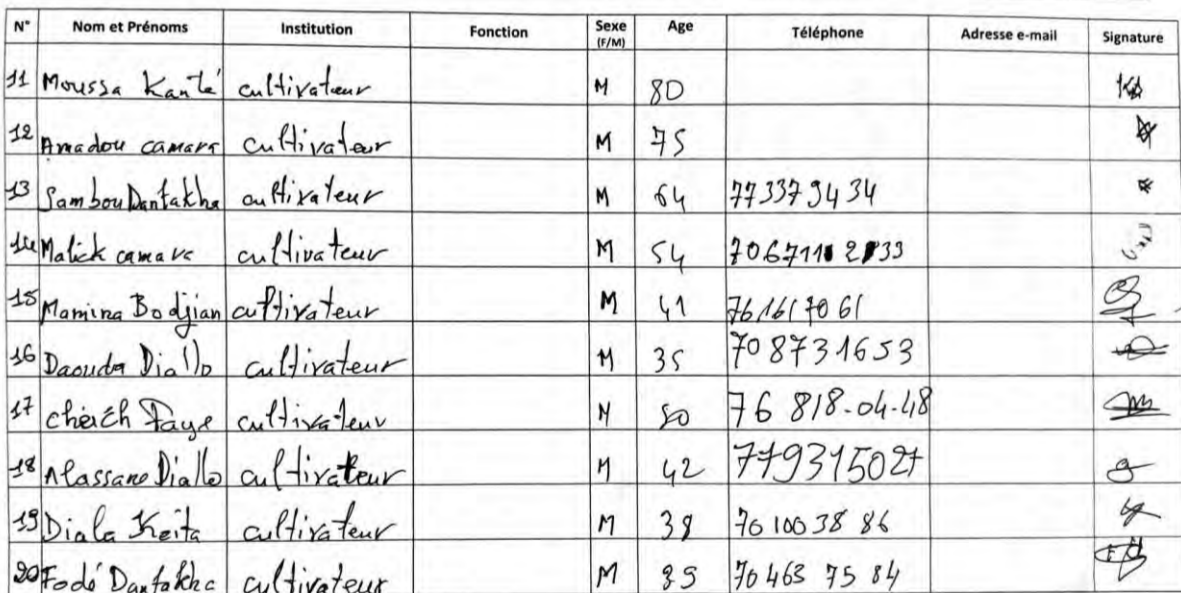 N° Nom et Prénoms Institution Fonction Sexe (F/M) Age Téléphone Adresse e-mail Signature
11 Moussa Kanté cultivateur M 80
12 Amadou camara cultivateur M 75
13 Sambou Dantakha cultivateur M 64 77 337 94 34
14 Malick camara cultivateur M 54
15 Mamina Bodjian cultivateur M 41 76 161 70 61
16 Daouda Diallo cultivateur M 35 70 873 16 53
17 cheich Faye cultivateur M 50 76 818-04-48
18 Alassane Diallo cultivateur M 42 779315027
19 Diala Keita cultivateur M 38 70 100 38 86
20 Fodé Dantakha cultivateur M 70 463 75 84